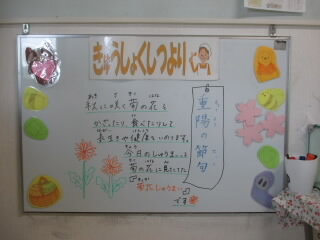 きゅうしょくしつより
重陽の節句
秋に咲く菊の花を
かざったり、食べたりして
長生きや健康をいのります。
今日のしゅうまいも
菊の花に見たてた
菊花しゅうまい
です